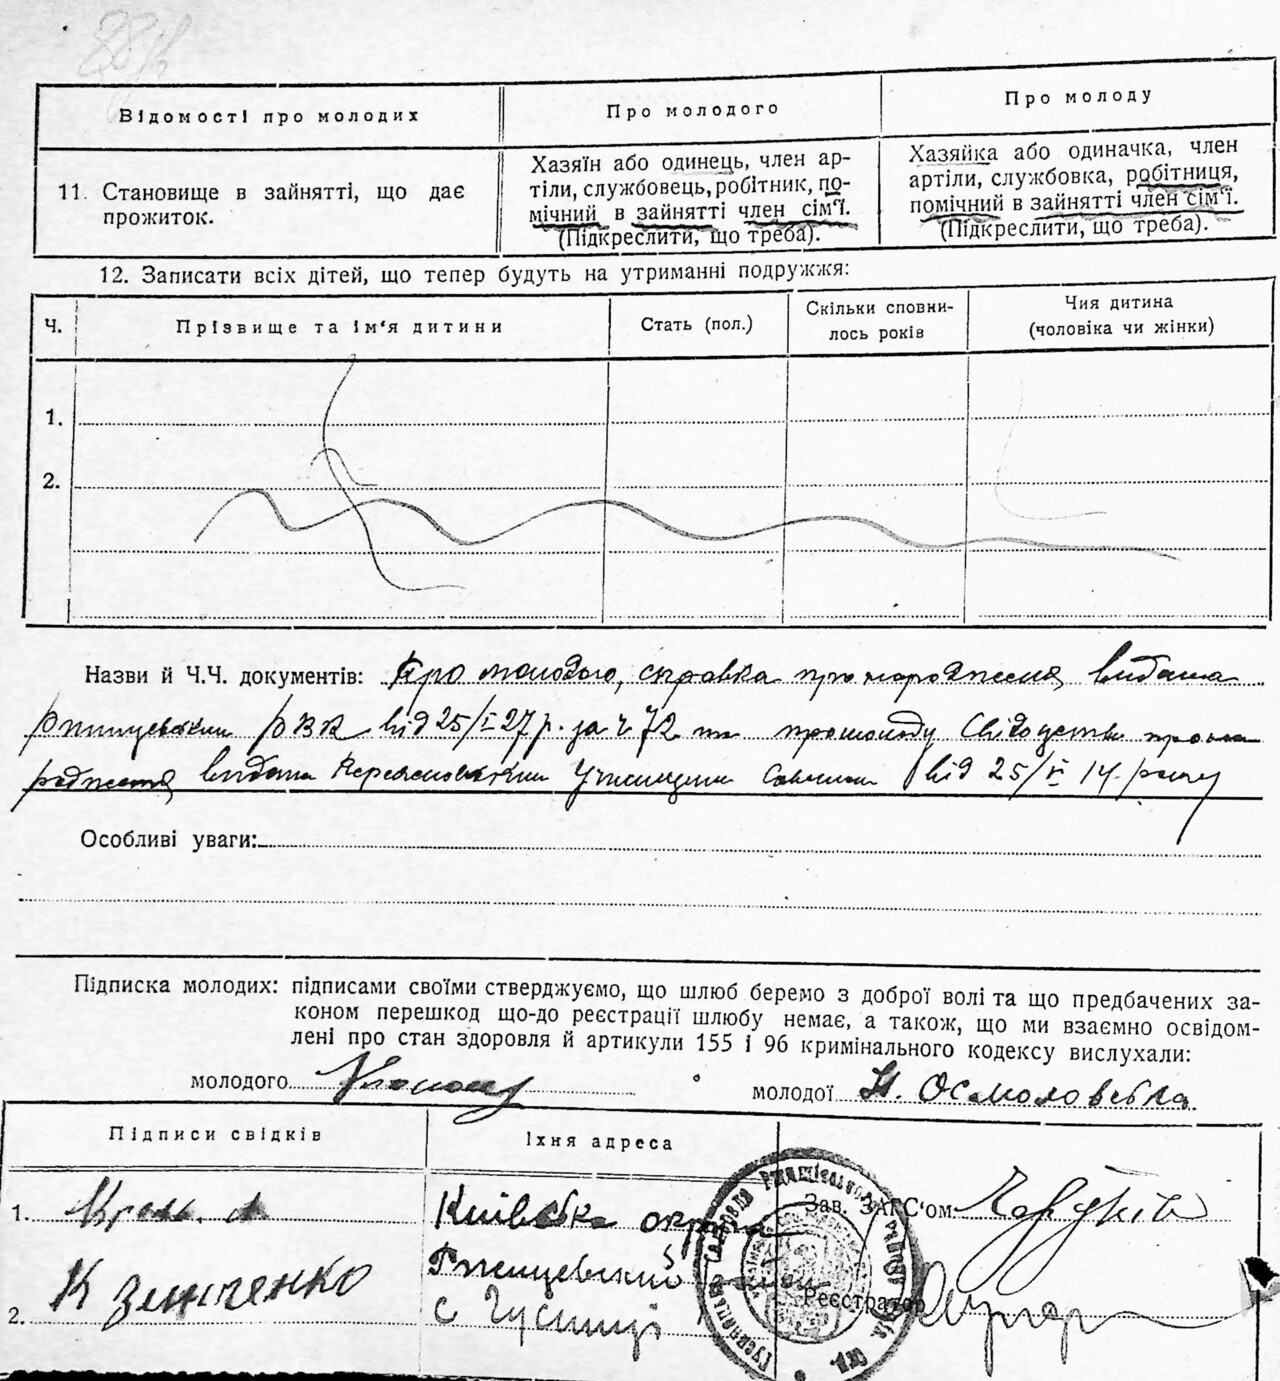 Відомості про молодих
Про молодого
Про молоду
11. Становище в зайнятті, що дає
прожиток.
Хазяїн або одинець, член ар-
тілі, службовець, робітник, по-
мічний в зайнятті член сім'ї.
(Підкреслити, що треба).
Хазяйка або одиначка, член
артіли, службовка, робітниця,
помічний в зайнятті член сім'ї.
(Підкреслити, що треба).
12. Записати всіх дітей, що тепер будуть на утриманні подружжя:
Ч.
Прізвище та ім'я дитини
Стать (пол.)
Скільки сповни-
лось років
Чия дитина
(чоловіка чи жінки)
1.
2.
Назви й Ч.Ч. документів: Про молодого, справка про народження, видана
РВК від 25/I 27 р. за ч. 72 та про молоду Свідоцтво про на
родження видана від 25/V 14. року
Особливі уваги:
Підписка молодих: підписами своїми стверджуємо, що шлюб беремо з доброї волі та що предбачених за-
коном перешкод що-до реєстрації шлюбу немає, а також, що ми взаємно освідом-
лені про стан здоровля й артикули 155 і 96 кримінального кодексу вислухали:
молодого
молодої Н. Осмоловська
Підписи свідків
Їхня адреса
1.
Київська округа
Зав. ЗАГС'ом
Ржищевський район
2. К
с Гусинці
Реєстратор